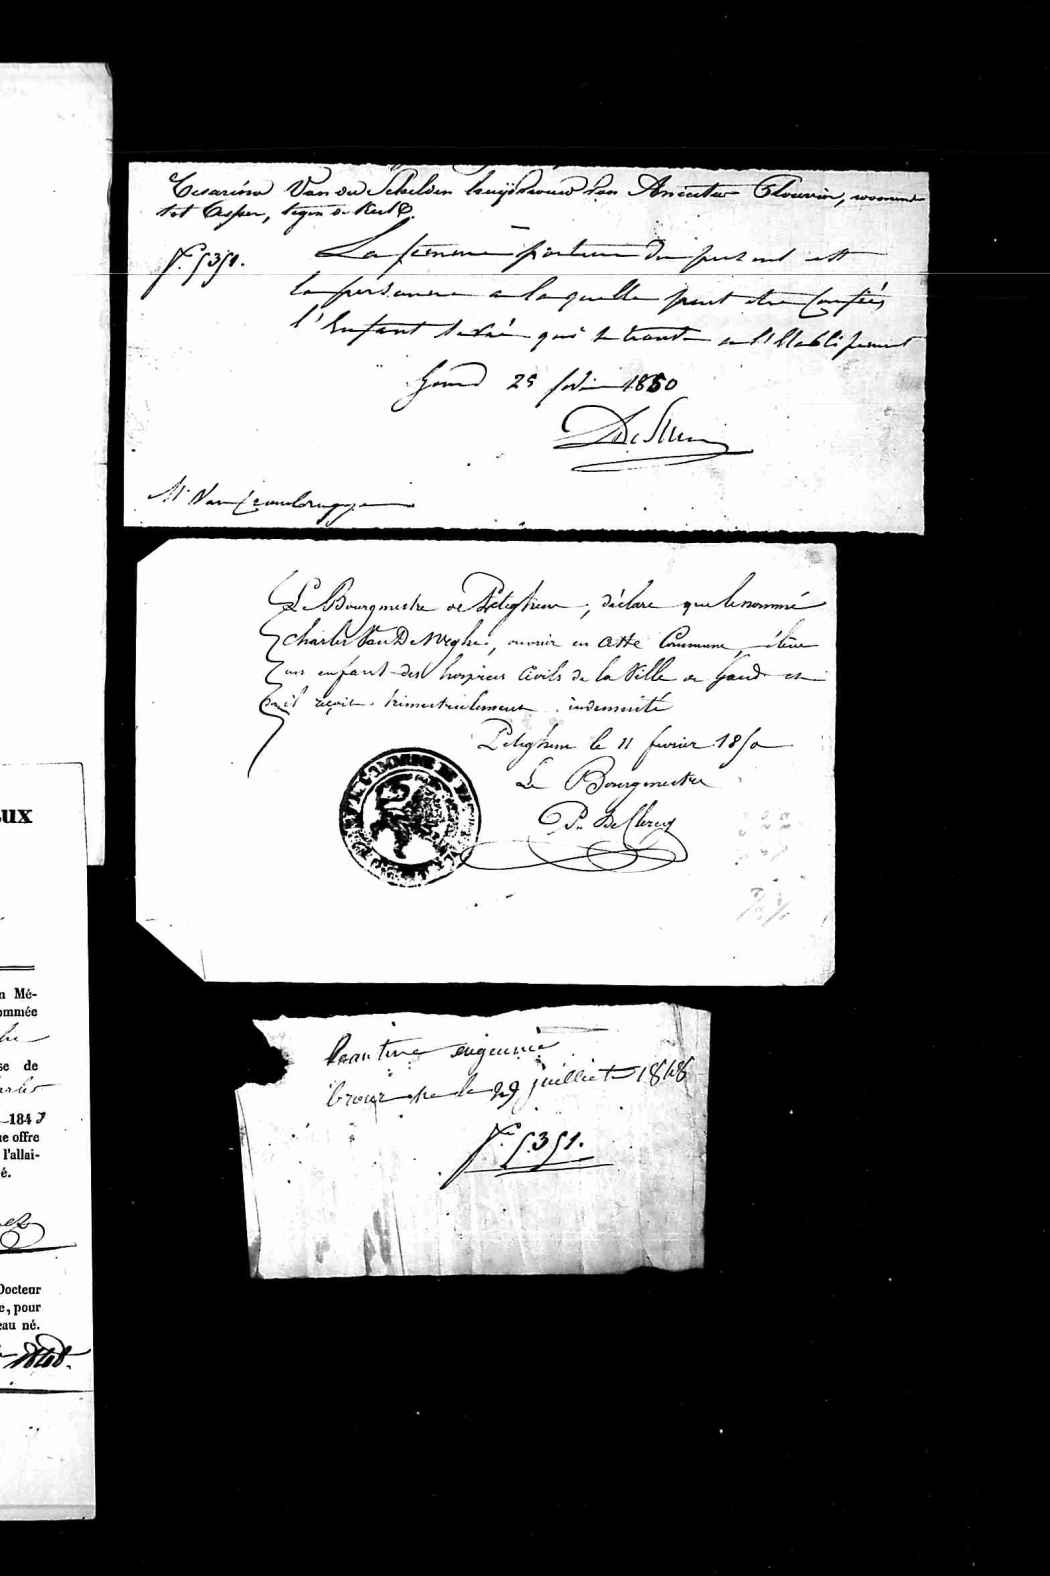 Van der Schelden huijsvrouw van Ameutur Clouvin, woonende
tot Asper, tegen de Kerk
F. 5351.
La femme porteur du present est
la personne a laquelle peut etre Confiés
l'Enfant sevré qui se trouve a l'Etablissement
Gand 25 1850
Mr Van Crombrugge
Le Bourgmestre de Peteghem, déclare que le nommé
Charles Van De Weghe, ouvrier en cette Commune, élève
un enfant des hospices Civils de la Ville de Gand et
qu'il reçoit trimestriellement indemnité
Peteghem le 11 fevrier 1850
Le Bourgmestre
De Clercq
COMMUNE DE
eugenie
le 29 juilliet 1848
F. 5351.
ux
n Mé-
ommée
se de
184
ne offre
l'allai-
é.
Docteur
e, pour
eau né.
1848.